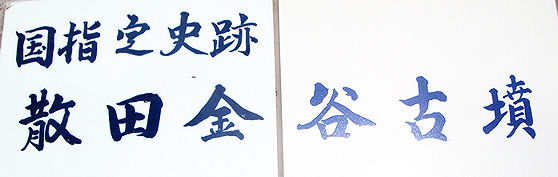 国指定史跡
散田金谷古墳